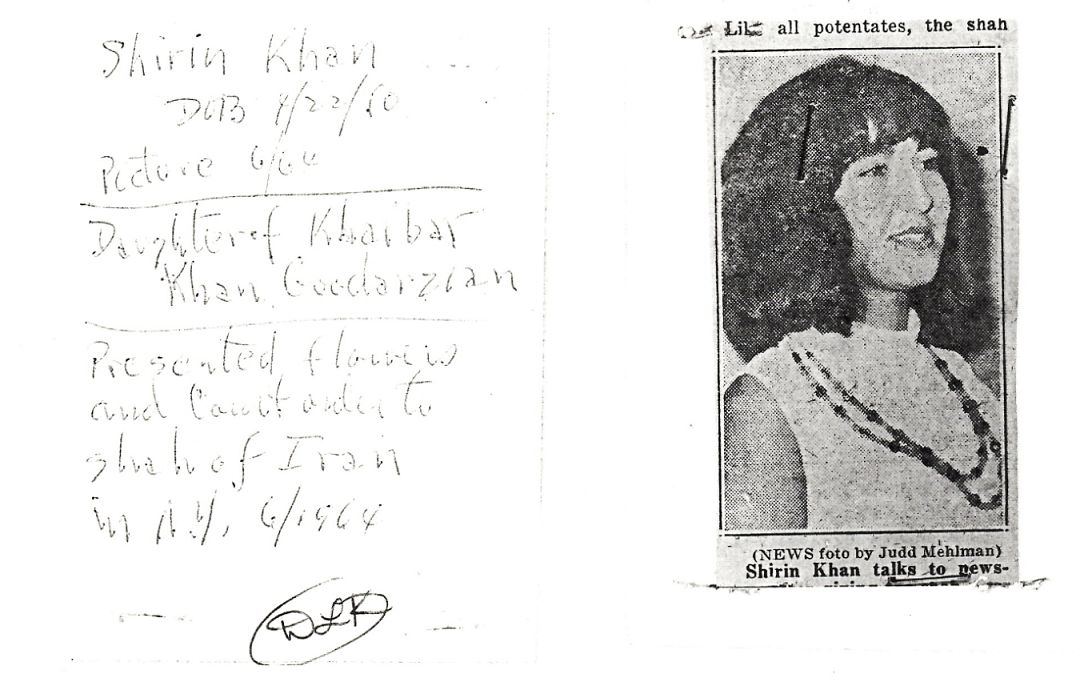 Shirin Khan
DOB
Picture 6/64
Daughter of Khaibar
Khan Goodarzian
Presented flowers
and Court order to
shah of Iran
in N.Y. 6/1964
DLK
Like all potentates, the shah
(NEWS foto by Judd Mehlman)
Shirin Khan talks to news-